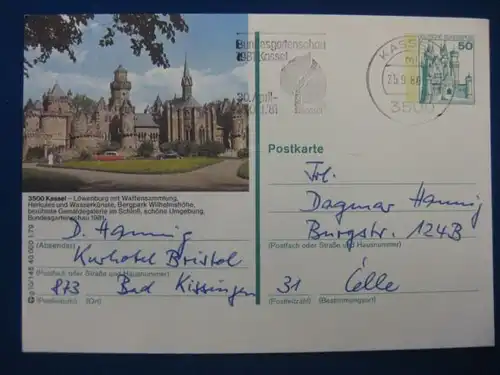 3500 Kassel – Löwenburg mit Waffensammlung,
Herkules und Wasserkünste, Bergpark Wilhelmshöhe,
berühmte Gemäldegalerie im Schloß, schöne Umgebung,
Bundesgartenschau 1981.
D. Hannig
(Absender)
Kurhotel Bristol
(Postfach oder Straße und Hausnummer)
873 Bad Kissingen
(Postleitzahl) (Ort)
g 10/145 40 000 1.79
Bundesgartenschau
1981 Kassel
30. April-
KASSEL
3500
DEUTSCHE BUNDESPOST
50
Postkarte
Frl.
Dagmar Hannig
Burgstr. 124B
(Postfach oder Straße und Hausnummer)
31 Celle
(Postleitzahl) (Bestimmungsort)